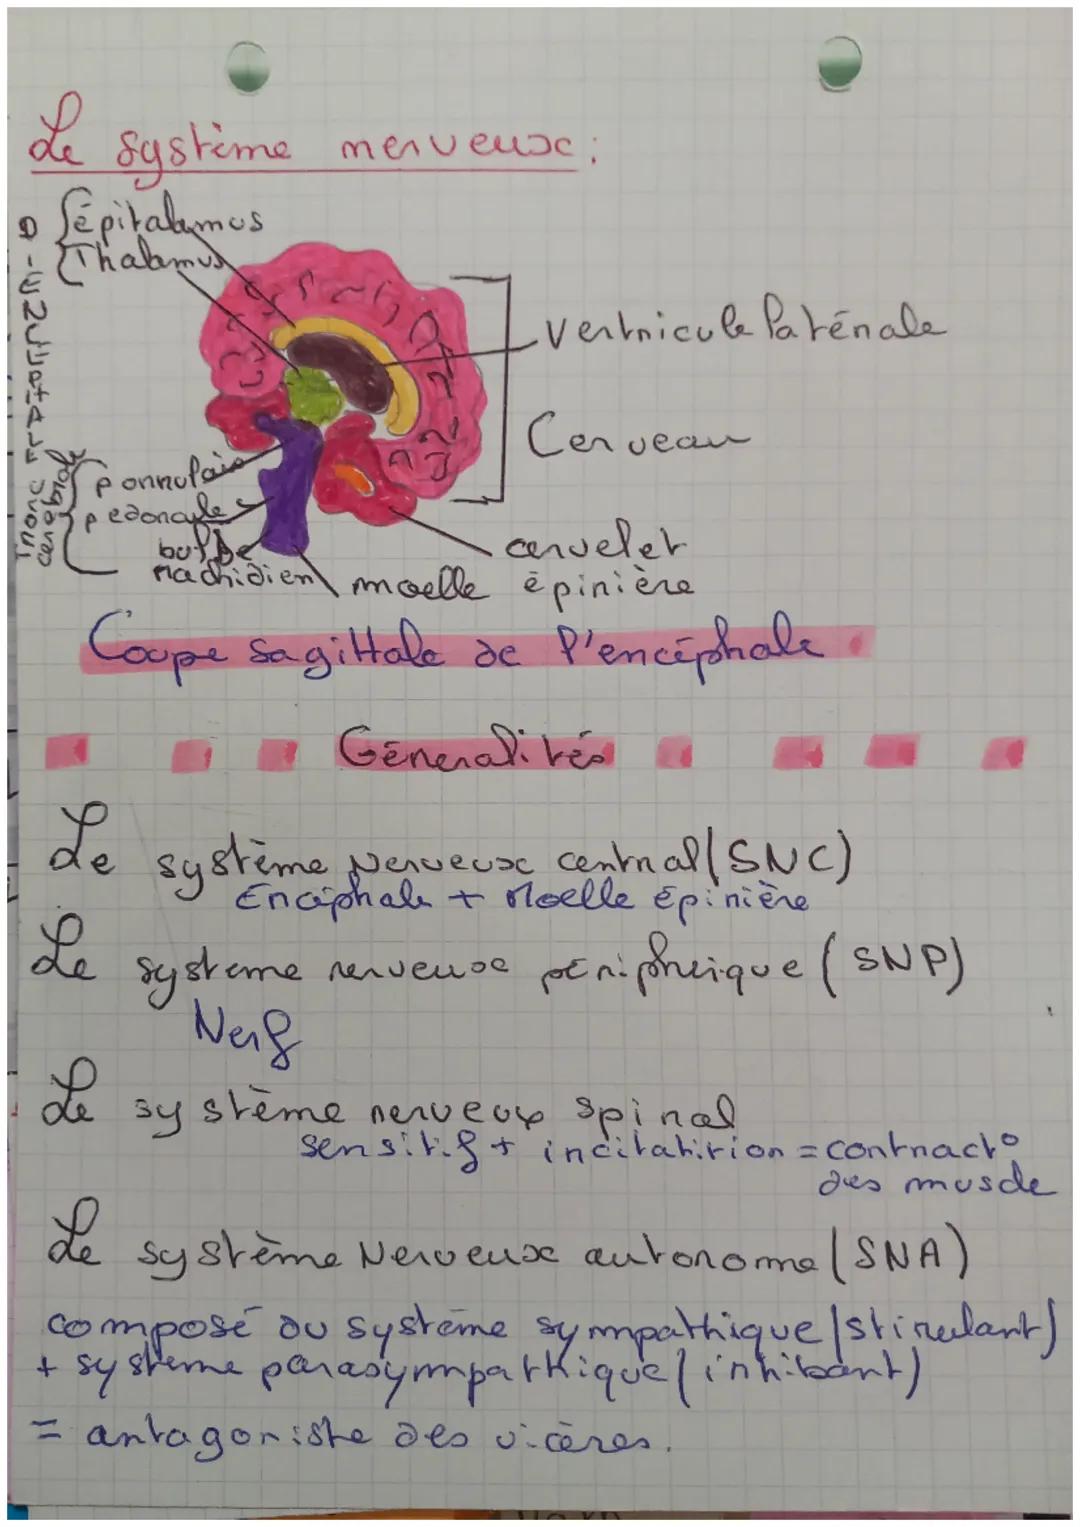 Le système nerveux :
épitalamus
Thalamus
Ventricule laténale
Cerveau
ponnulaire
pedoncule
bulbe
rachidien
cervelet
moelle épinière
Coupe sagittale de l'encéphale
Géneralités
Le système Nerveux central (SNC)
Encéphale + Moelle épinière
Le systeme nerveux périphérique (SNP)
Nerf
Le système nerveux spinal
sensitif + incitatirion = contract°
des muscle
Le système Nerveux autonome (SNA)
composé du système sympathique (stimulant)
+ systeme parasympathique (inhibant)
= antagoniste des vicères.